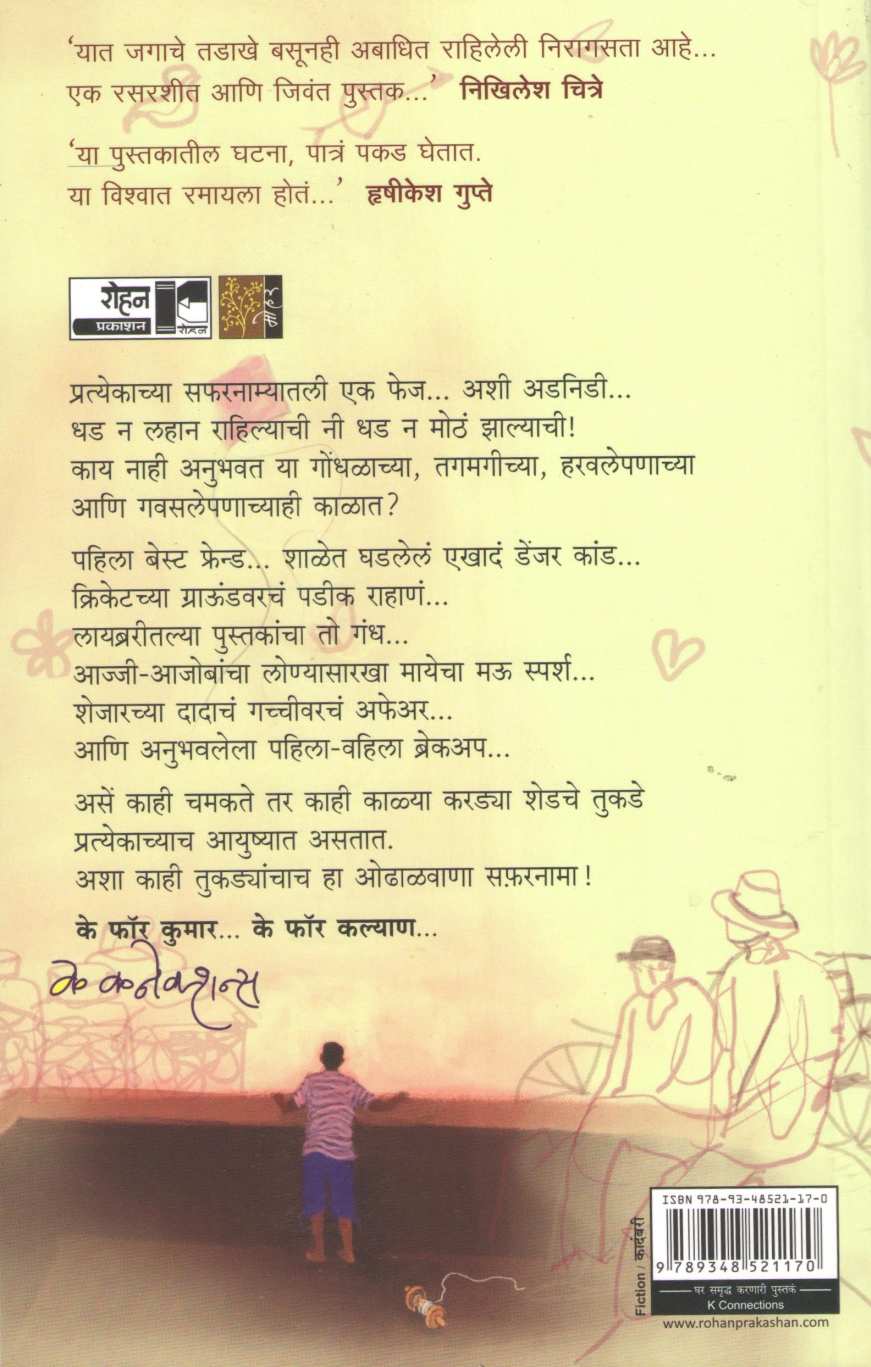 ‘यात जगाचे तडाखे बसूनही अबाधित राहिलेली निरागसता आहे...
एक रसरशीत आणि जिवंत पुस्तक...’ निखिलेश चित्रे
‘या पुस्तकातील घटना, पात्रं पकड घेतात.
या विश्वात रमायला होतं...’ हृषीकेश गुप्ते
रोहन
प्रकाशन
रोहन
मोहर
प्रत्येकाच्या सफरनाम्यातली एक फेज... अशी अडनिडी...
धड न लहान राहिल्याची नी धड न मोठं झाल्याची!
काय नाही अनुभवत या गोंधळाच्या, तगमगीच्या, हरवलेपणाच्या
आणि गवसलेपणाच्याही काळात?
पहिला बेस्ट फ्रेन्ड... शाळेत घडलेलं एखादं डेंजर कांड...
क्रिकेटच्या ग्राऊंडवरचं पडीक राहाणं...
लायब्ररीतल्या पुस्तकांचा तो गंध...
आज्जी-आजोबांचा लोण्यासारखा मायेचा मऊ स्पर्श...
शेजारच्या दादाचं गच्चीवरचं अफेअर...
आणि अनुभवलेला पहिला-वहिला ब्रेकअप...
असें काही चमकते तर काही काळ्या करड्या शेडचे तुकडे
प्रत्येकाच्याच आयुष्यात असतात.
अशा काही तुकड्यांचाच हा ओढाळवाणा सफ़रनामा!
के फॉर कुमार... के फॉर कल्याण...
के कनेक्शन्स
Fiction / कादंबरी
ISBN 978-93-48521-17-0
9 789348 521170
घर समृद्ध करणारी पुस्तकं
K Connections
www.rohanprakashan.com